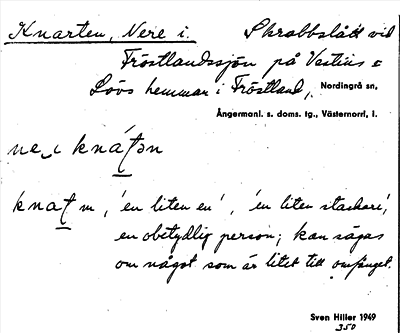 Knarten, Nere i. Skrabbslått vid
Fröstlandssjön på Vestins o
Lövs hemmar i Fröstland, Nordingrå sn,
Ångermanl. s. doms. tg., Västernorrl. l.
ne i knátən
knat m, 'en liten en', 'en liten stackare',
en obetydlig person; kan sägas
om något som är litet till omfånget.
Sven Hiller 1949
350